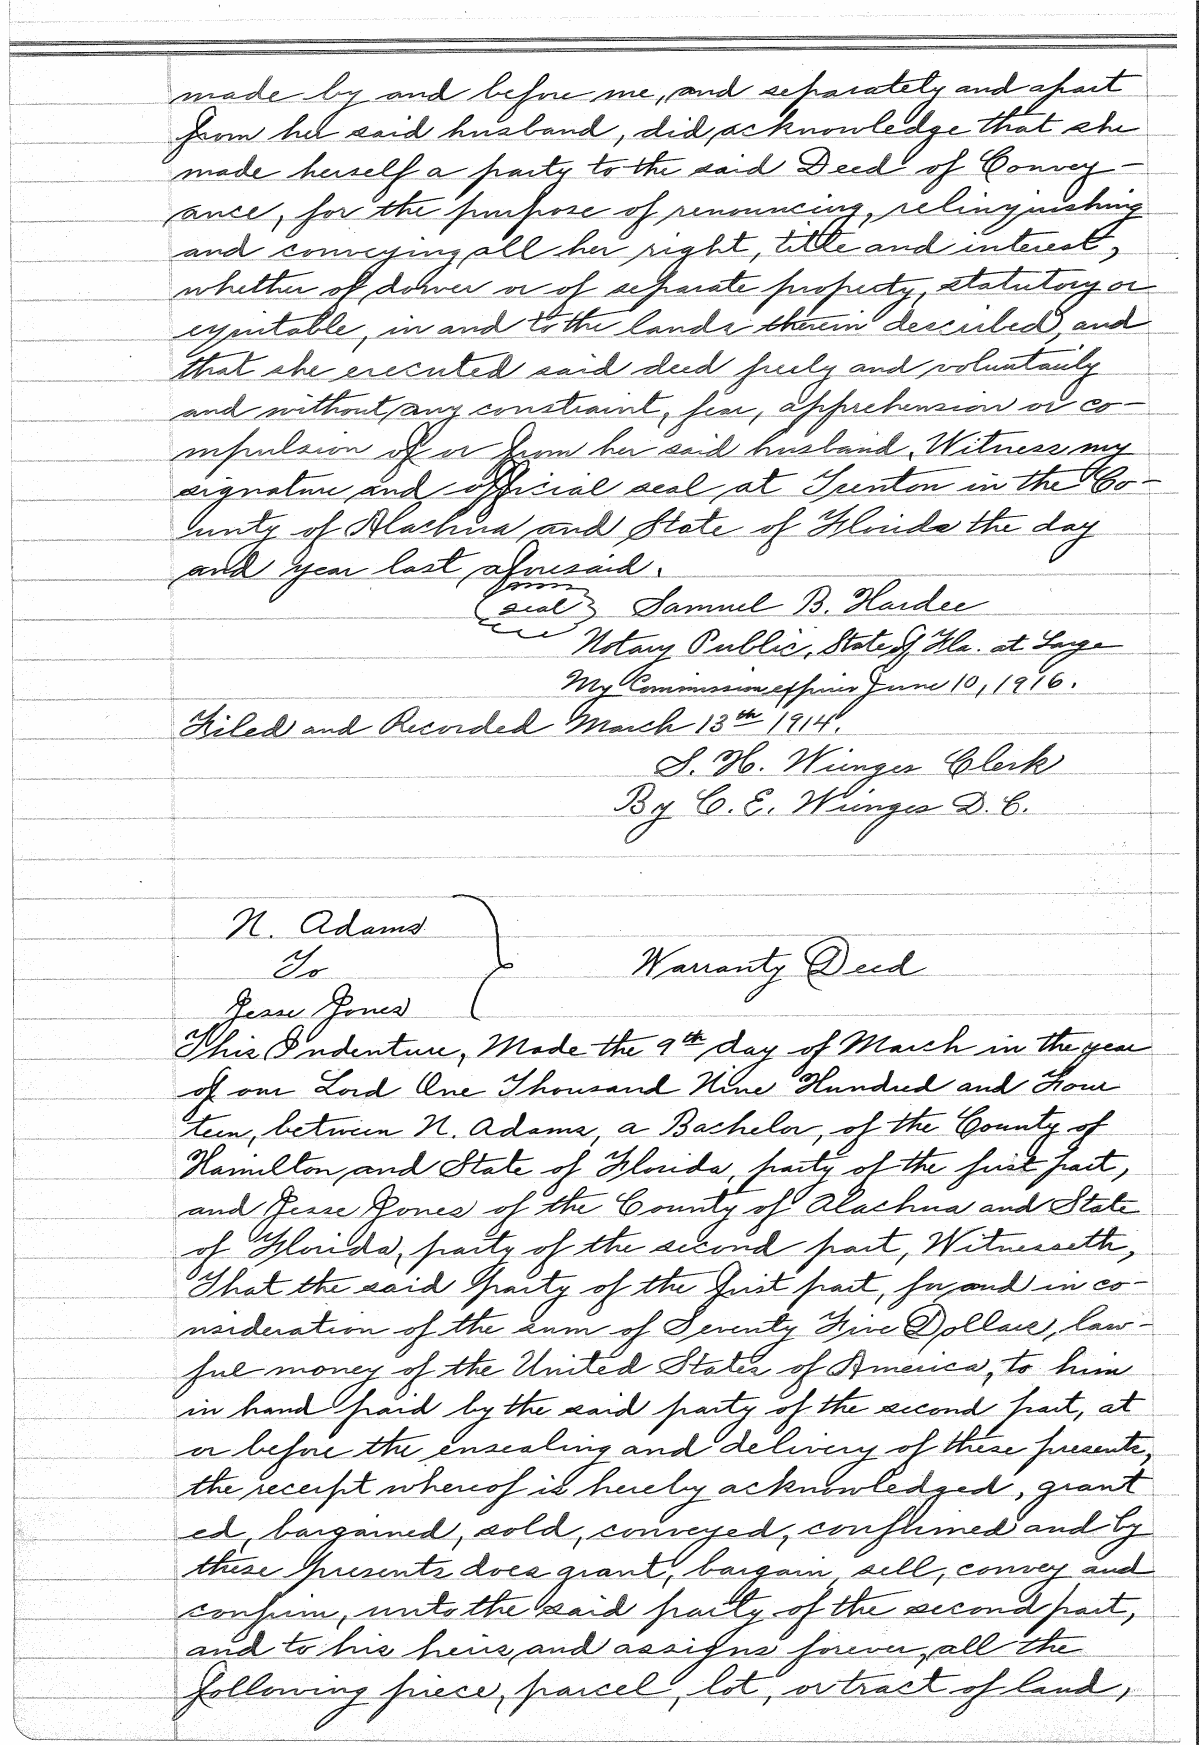 made by and before me, and separately and apart
from her said husband, did acknowledge that she
made herself a party to the said Deed of Convey-
ance, for the purpose of renouncing, relinquishing
and conveying all her right, title and interest,
whether of dower or of separate property, statutory or
equitable, in and to the lands therein described, and
that she executed said deed freely and voluntarily
and without any constraint, fear, apprehension or co-
mpulsion of or from her said husband. Witness my
signature and official seal at Trenton in the Co-
unty of Alachua and State of Florida the day
and year last aforesaid.
(seal) Samuel B. Hardee
Notary Public, State of Fla. at Large
My Commission expires June 10, 1916.
Filed and Recorded March 13th 1914.
S. H. Wienges Clerk
By C. E. Wienges D. C.
N. Adams
To
Warranty Deed
Jesse Jones
This Indenture, Made the 9th day of March in the year
of our Lord One Thousand Nine Hundred and Four
teen, between N. Adams, a Bachelor, of the County of
Hamilton and State of Florida, party of the first part,
and Jesse Jones of the County of Alachua and State
of Florida, party of the second part, Witnesseth,
That the said party of the first part, for and in co-
nsideration of the sum of Seventy Five Dollars, law-
ful money of the United States of America, to him
in hand paid by the said party of the second part, at
or before the ensealing and delivery of these presents,
the receipt whereof is hereby acknowledged, grant
ed, bargained, sold, conveyed, confirmed and by
these presents does grant, bargain, sell, convey and
confirm, unto the said party of the second part,
and to his heirs and assigns forever, all the
following piece, parcel, lot, or tract of land,